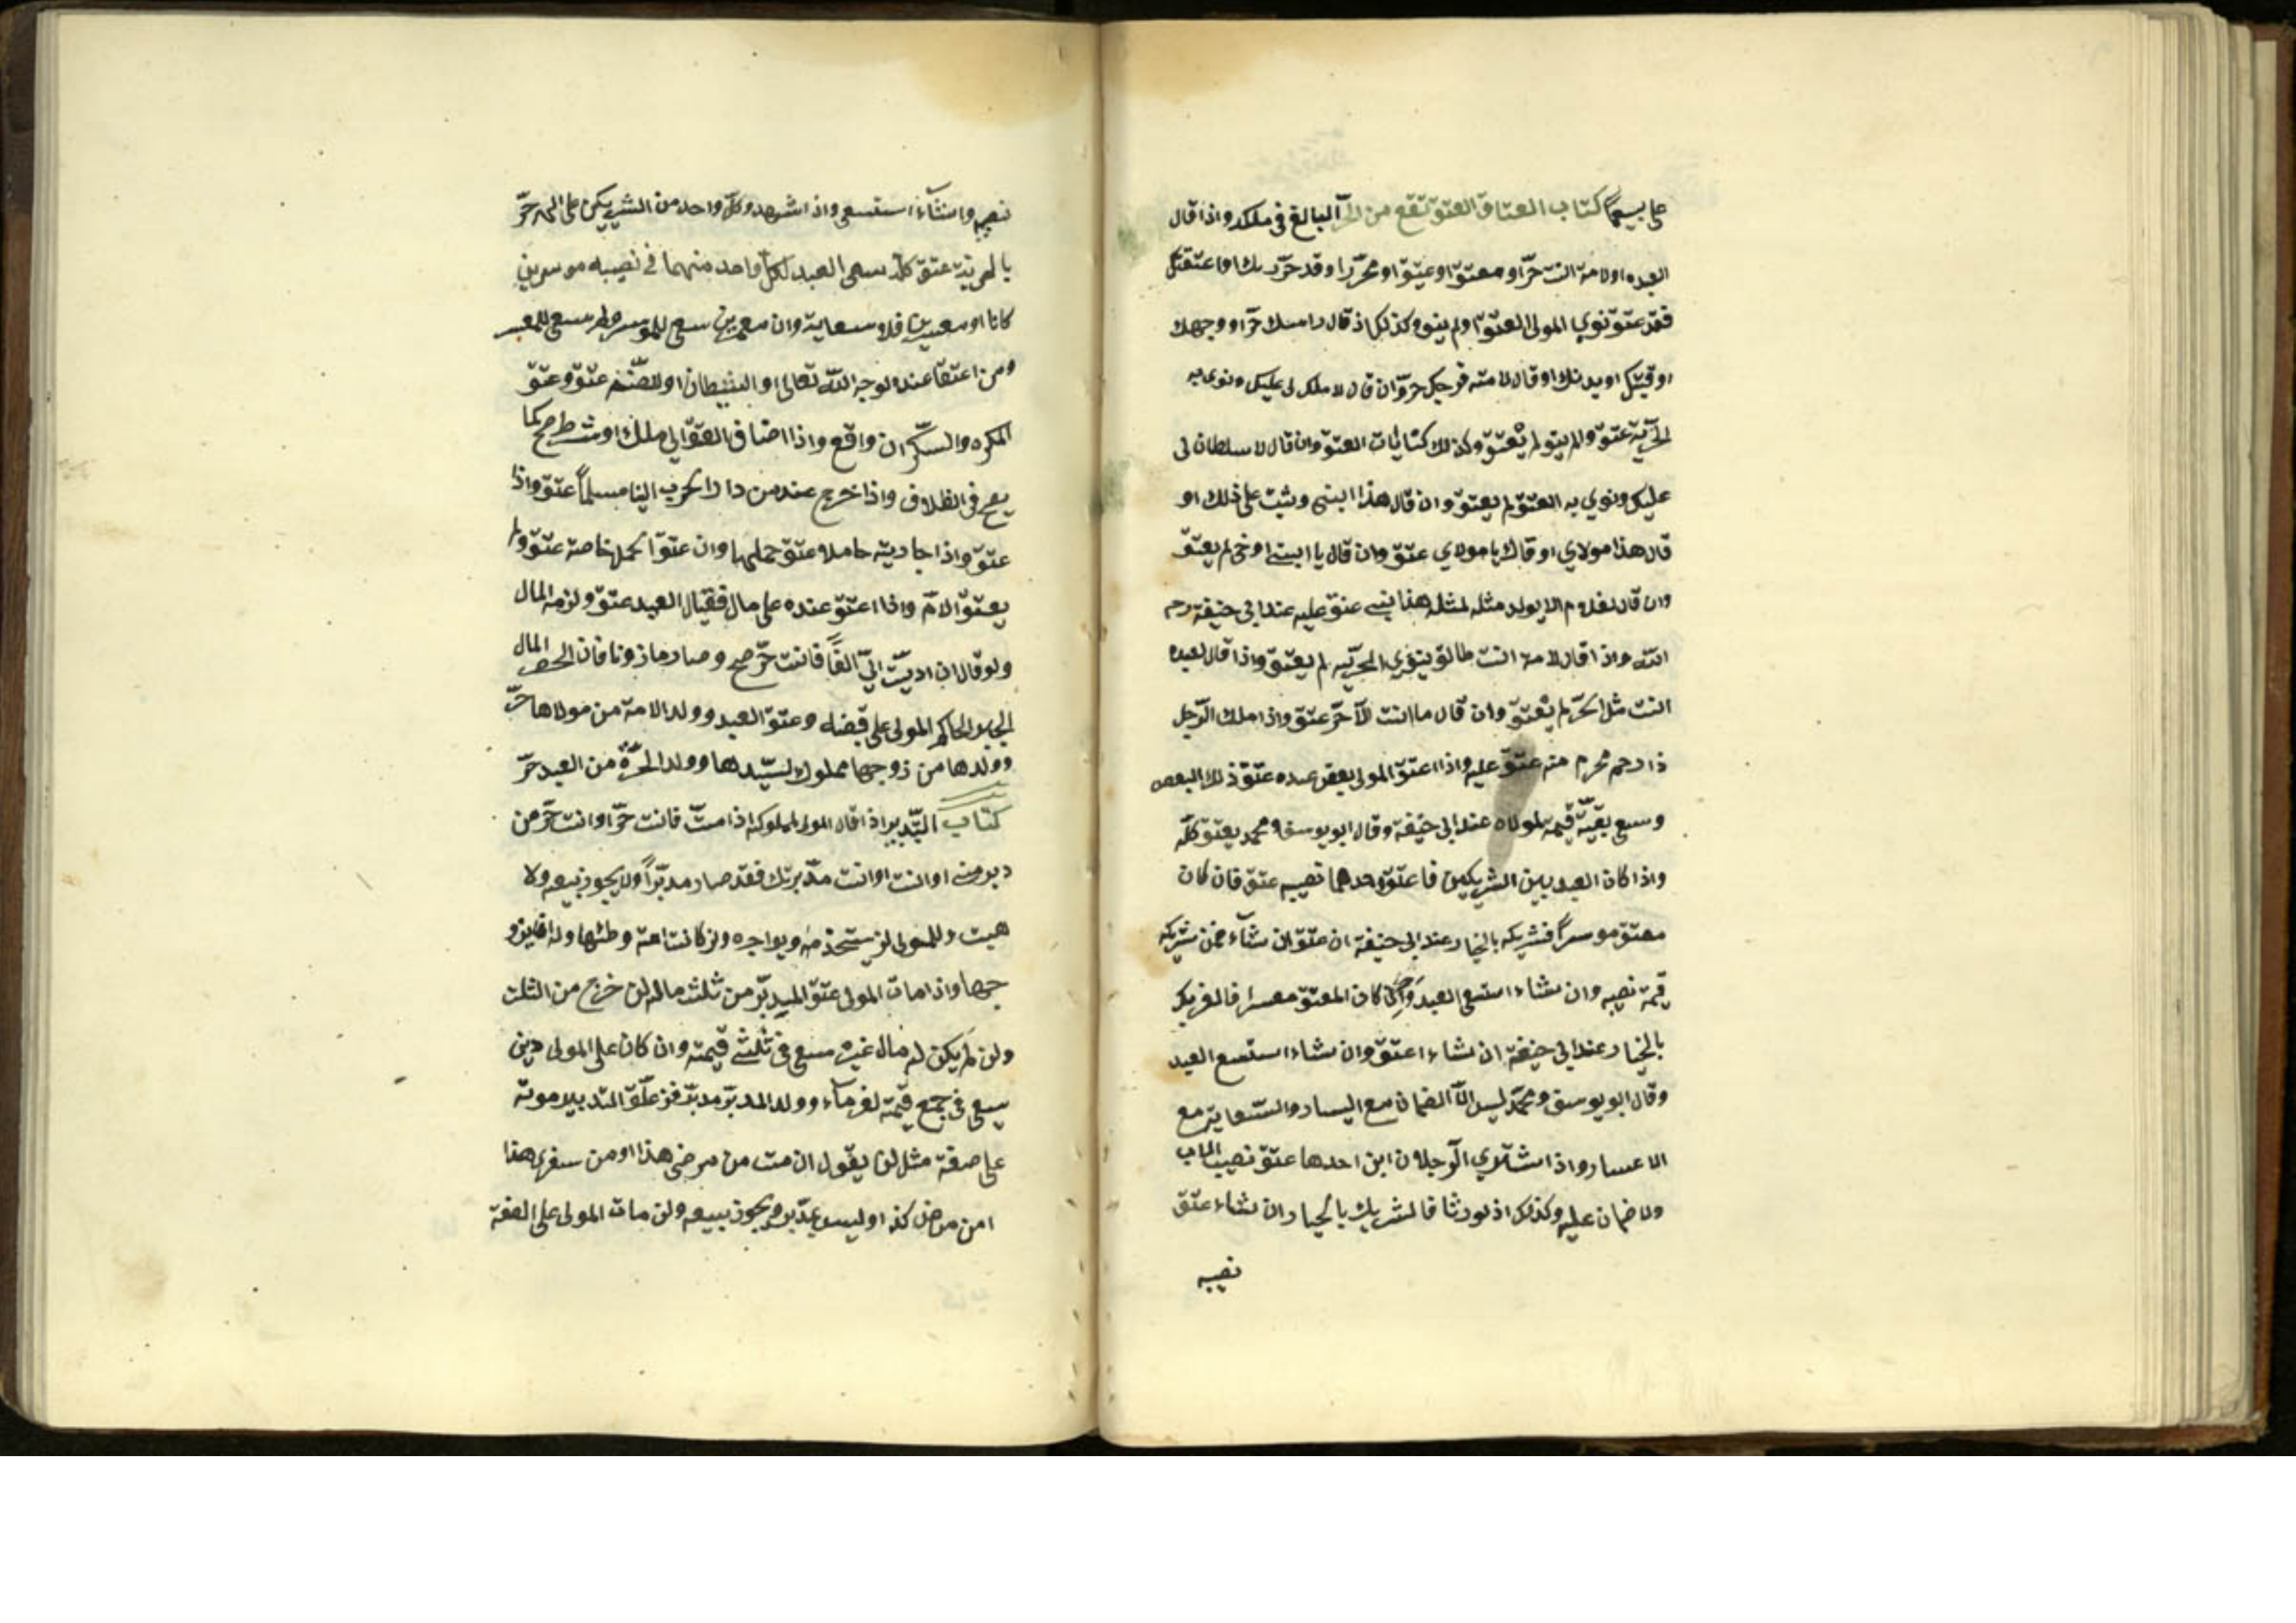 على يسيرًا كتاب العتاق العتق تقع من الحرّ البالغ في ملكه واذا قال
العبده اولامته انت حرّ او معتق او عتيق او محرّر او قد حرّرتك او اعتقتك
فقد عتق نوي المولى العتق او لم ينو وكذلك اذ قال راسك حرّ او وجهك
او رقبتك او بدنك او قال لامته فرجك حرّ وان قال لا ملك لي عليك ونوى به
الحريّة عتق وان لم ينو لم يعتق وكذلك كنايات العتق وان قال لا سلطان لى
عليك ونوي به العتق لم يعتق وان قال هذا ابني وثبت على ذلك او
قال هذا مولاي او قال يا مولاي عتق وان قال يا ابني او اخي لم يعتق
وان قال لغلام لا يولد مثله لمثله هذا ابني عتق عليه عند ابي حنيفة رحمه
الله واذا قال لامته انت طالق ينوي الحريّه لم يعتق واذا قال لعبده
انت مثل الحرّ لم يعتق وان قال ما انت الّا حرّ عتق واذا ملك الرّجل
ذا رحم محرم منه عتق عليه واذا اعتق المولى بعض عبده عتق ذلك البعض
وسعى بقيّة قيمته لمولاه عند ابي حنيفة وقال ابو يوسف ومحمد يعتق كلّه
واذا كان العبد بين الشريكين فاعتق احدهما نصيبه عتق فان كان
معتق موسرًا فشريكه بالخيار عند ابي حنيفة ان عتق ان شآء ضمن شريكه
قيمة نصيبه وان شاء استسعى العبد كان المعتق معسرا فالشريك
بالخيار عند ابي حنيفة ان شاء اعتق وان شاء استسعى العبد
وقال ابو يوسف ومحمّد ليس الّا الضمان مع اليسار والسّعاية مع
الاعسار واذا اشتري الرّجلان ابن احدها عتق نصيب الاب
ولا ضمان عليه وكذلك اذ لورثا فالشريك بالخيار ان شاء عتق
نصيبه
نصيبه وان شآء استسعى واذ اشهد وكلّ واحد من الشريكين على الاخر
بالحرية عتق كلّه سعى العبد لكلّ واحد منهما في نصيبه موسرين
كانا او معسرين فلا سعاية وان معسرين سعى للموسر ولم يسع للمعسر
ومن اعتق عبده لوجه الله تعالى او الشيطان او للصّنم عتق وعتق
المكره والسكّران واقع واذا اضاف العتق الى ملك او شرط صح كما
يصح في الطلاق واذا خرج عبد من دار الحرب الينا مسلمًا عتق واذا
عتق واذا جارية حاملا عتق حملها وان عتق الحمل خاصة عتق ولم
يعتق الامّ واذا اعتق عبده على مال فقبال العبد عتق ولزمه المال
ولو قال ان اديّت اليّ الفًا فانت حرّ صح وصار ماذونا فان احضر المال
اجبر الحاكم المولى على قبضه وعتق العبد وولد الامة من مولاها حرّ
وولدها من زوجها مملوك لسيّدها وولد الحرّة من العبد حرّ
كتاب التّدبير اذا قال المولى لمملوكه اذا متّ فانت حرّ او انت حرّ من
دبر مني او انت او انت مدّبر فقد صار مدبّرًا ولا يجوز بيعه ولا
هبته وللمولى ان يستخدمه ويواجره وان كانت امة وطئها وله ان يزو
جها واذا مات المولى عتق المدبّر من ثلث ماله ان خرج من الثلث
وان لم يكن له مال غيره سعى في ثلثي قيمته وان كان على المولى دين
يسعى في جميع قيمته لغرمآء وولد المدبّر مدبّر فان علّق التدبير بموته
على صفة مثل ان يقول ان مت من مرضي هذا او من سفري هذا
امن مرض كذا وليس بمدّبر ويجوز بيعه وان مات المولى على الصفة